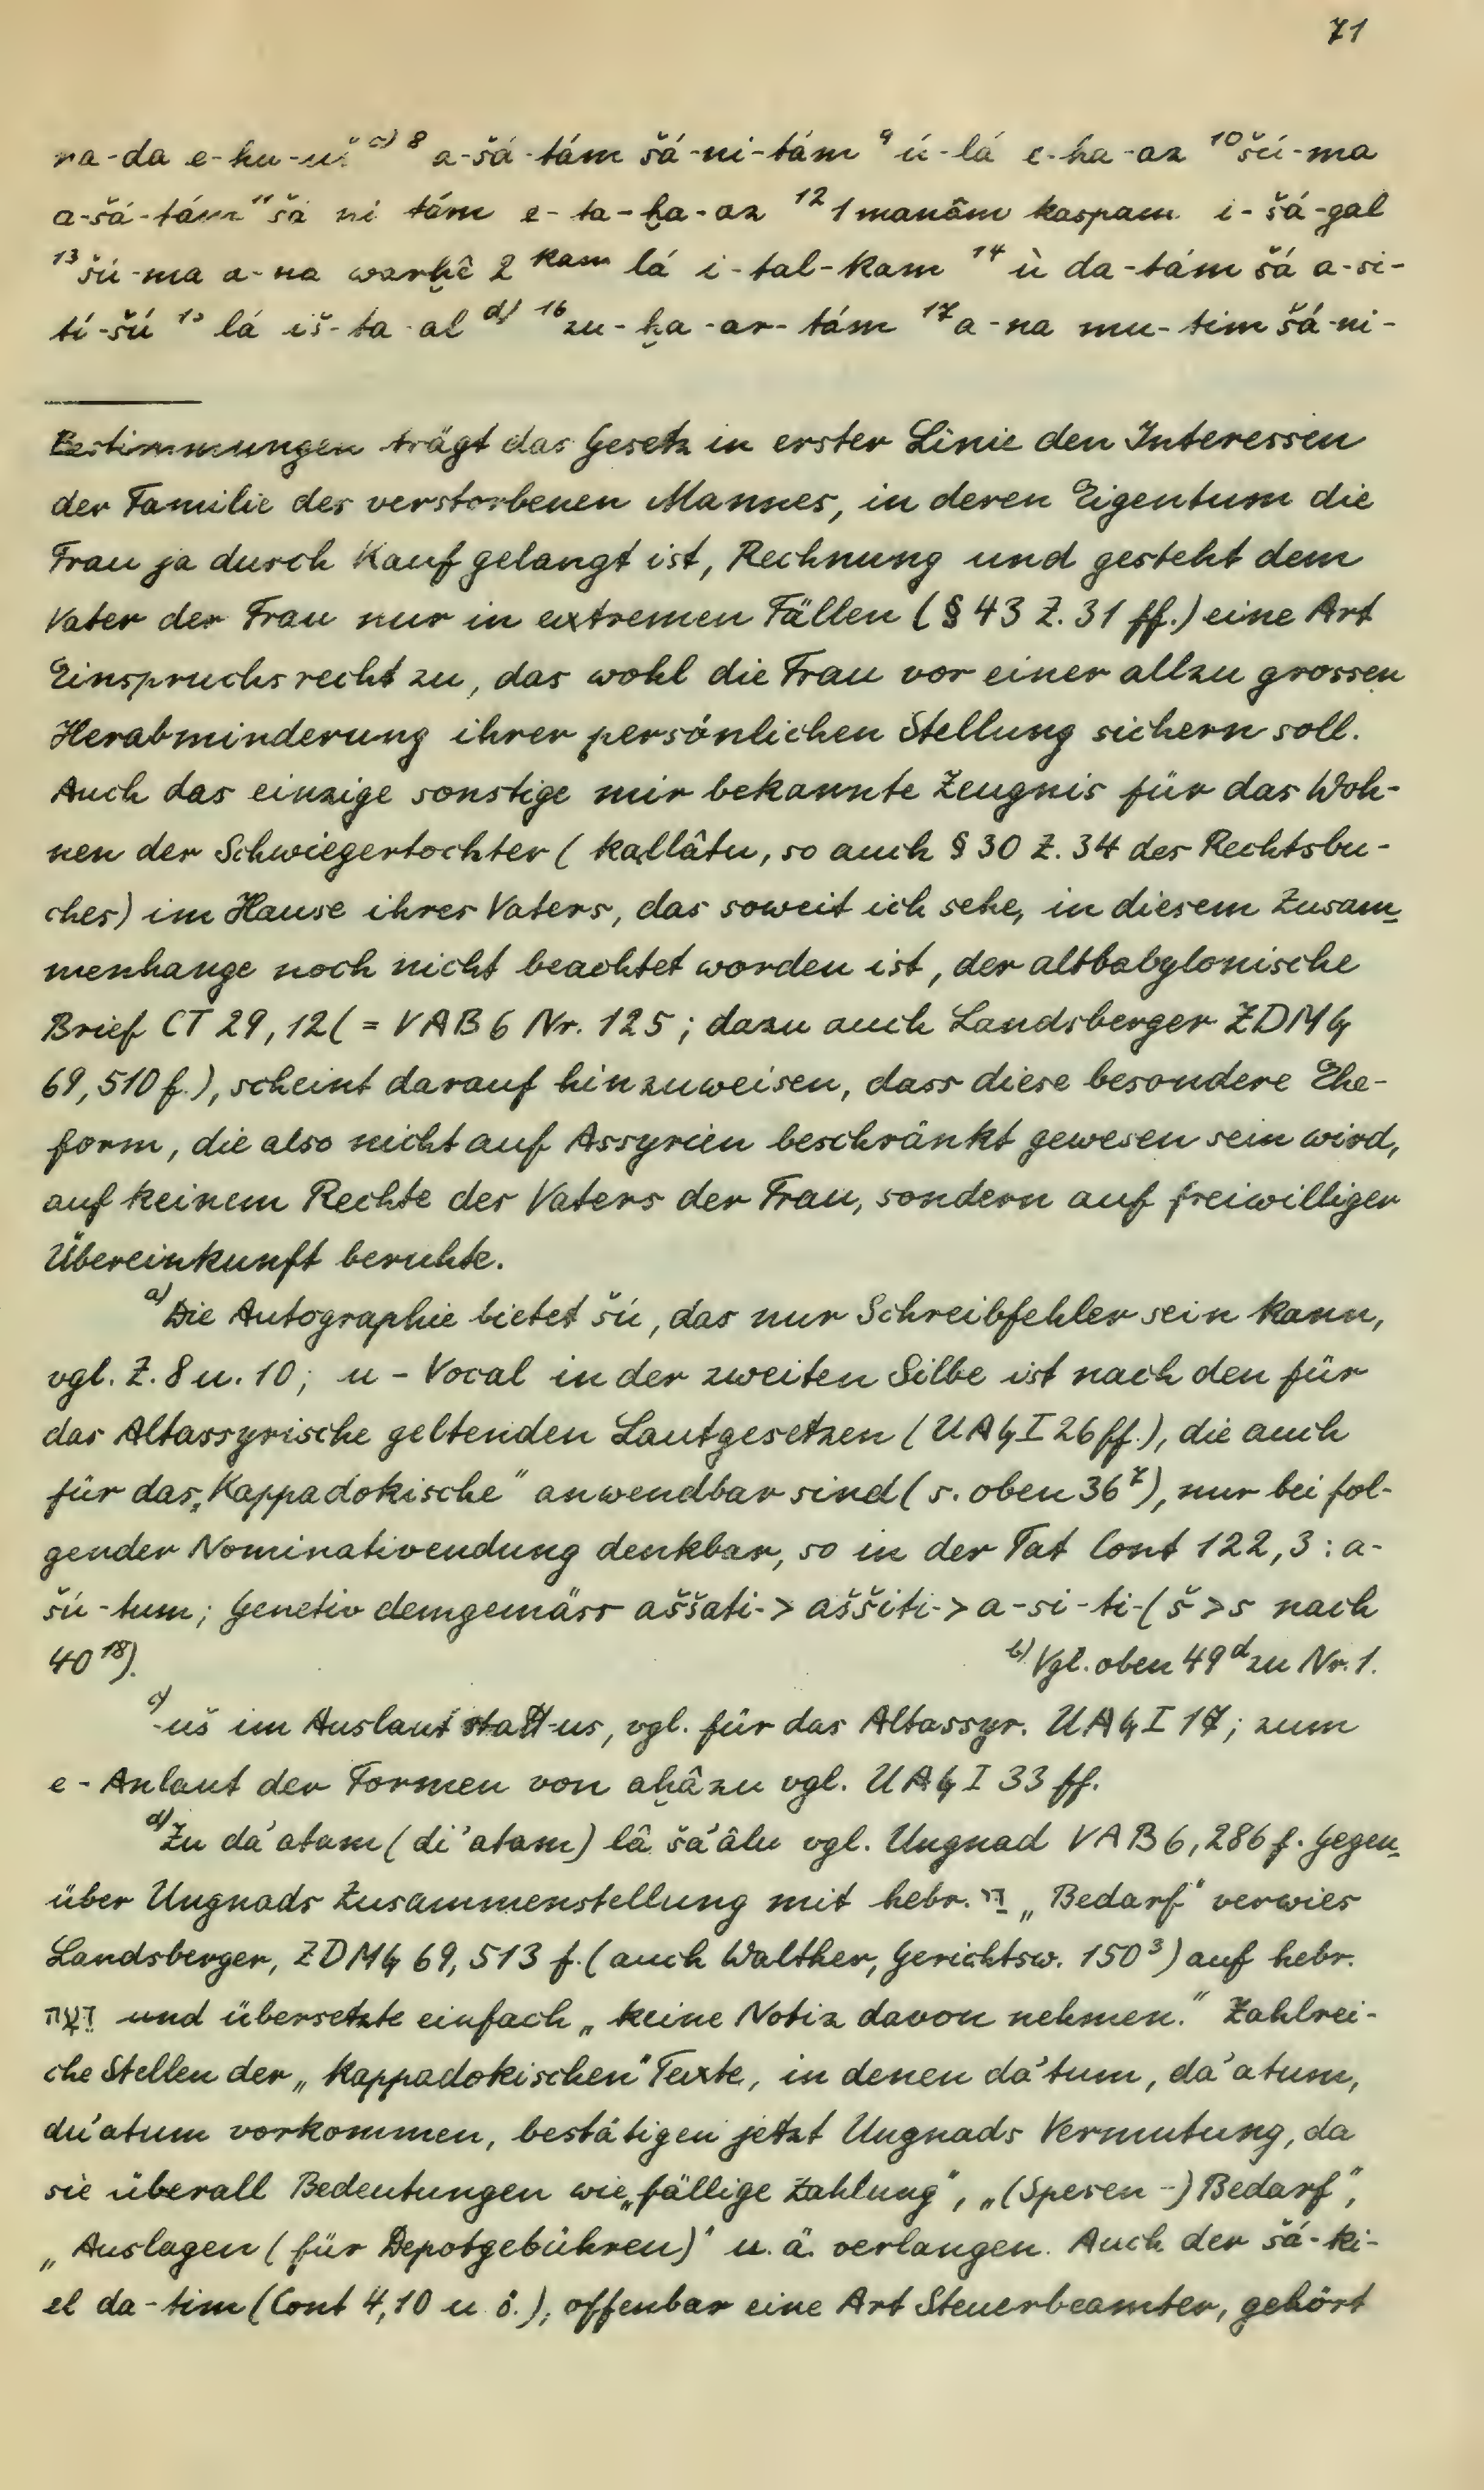 71
na-da e-hu-uš c) 8 a-šá-tám šá-ni-tám 9 ú-lá e-ha-az 10 šú-ma
a-šá-tám 11 šá ni tám e-ta-ḫa-az 12 1 manâm kaspam i-šá-gal
13 šú-ma a-na warḫê 2 kam lá i-tal-kam 14 ù da-tám šá a-si-
tí-šú 15 lá iš-ta-al d) 16 zu-ḫa-ar-tám 17 a-na mu-tim šá-ni-
Bestimmungen trägt das Gesetz in erster Linie den Interessen
der Familie des verstorbenen Mannes, in deren Eigentum die
Frau ja durch Kauf gelangt ist, Rechnung und gesteht dem
Vater der Frau nur in extremen Fällen (§ 43 Z. 31 ff.) eine Art
Einspruchsrecht zu, das wohl die Frau vor einer allzu grossen
Herabminderung ihrer persönlichen Stellung sichern soll.
Auch das einzige sonstige mir bekannte Zeugnis für das Woh-
nen der Schwiegertochter (kallâtu, so auch § 30 Z. 34 des Rechtsbu-
ches) im Hause ihres Vaters, das soweit ich sehe, in diesem Zusam-
menhange noch nicht beachtet worden ist, der altbabylonische
Brief CT 29, 12 (= VAB 6 Nr. 125; dazu auch Landsberger ZDMG
69, 510 f.), scheint darauf hinzuweisen, dass diese besondere Ehe-
form, die also nicht auf Assyrien beschränkt gewesen sein wird,
auf keinem Rechte des Vaters der Frau, sondern auf freiwilliger
Übereinkunft beruhte.
a) Die Autographie bietet šú, das nur Schreibfehler sein kann,
vgl. Z. 8 u. 10; u-Vocal in der zweiten Silbe ist nach den für
das Altassyrische geltenden Lautgesetzen (UAG I 26 ff.), die auch
für das „Kappadokische" anwendbar sind (s. oben 36⁷), nur bei fol-
gender Nominativendung denkbar, so in der Tat Cont 122, 3: a-
šú-tum; Genetiv demgemäss aššati-> aššiti-> a-si-ti- (š > s nach
40¹⁸). b) Vgl. oben 49ᵈ zu Nr. 1.
c) -uš im Auslaut statt -us, vgl. für das Altassyr. UAG I 17; zum
e-Anlaut der Formen von aḫâzu vgl. UAG I 33 ff.
d) Zu da'atam (di'atam) lâ ša'âlu vgl. Ungnad VAB 6, 286 f. Gegen-
über Ungnads Zusammenstellung mit hebr. דַּי „Bedarf" verwies
Landsberger, ZDMG 69, 513 f. (auch Walther, Gerichtsw. 150³) auf hebr.
דֵּעָה und übersetzte einfach „keine Notiz davon nehmen." Zahlrei-
che Stellen der „kappadokischen" Texte, in denen da'tum, da'atum,
du'atum vorkommen, bestätigen jetzt Ungnads Vermutung, da
sie überall Bedeutungen wie „fällige Zahlung", „(Spesen-) Bedarf",
„Auslagen (für Depotgebühren)" u. ä. verlangen. Auch der šá-ki-
el da-tim (Cont 4, 10 u. ö.), offenbar eine Art Steuerbeamter, gehört